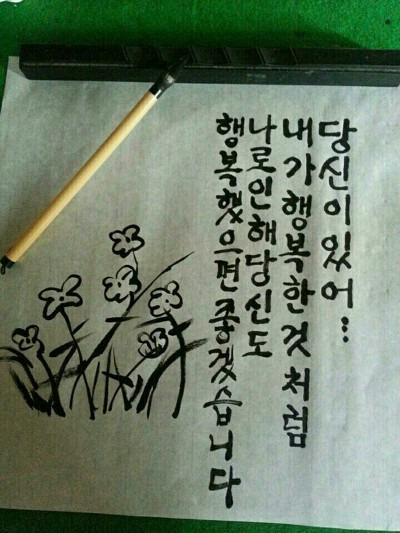 당신이있어...
내가행복한것처럼
나로인해당신도
행복했으면좋겠습니다